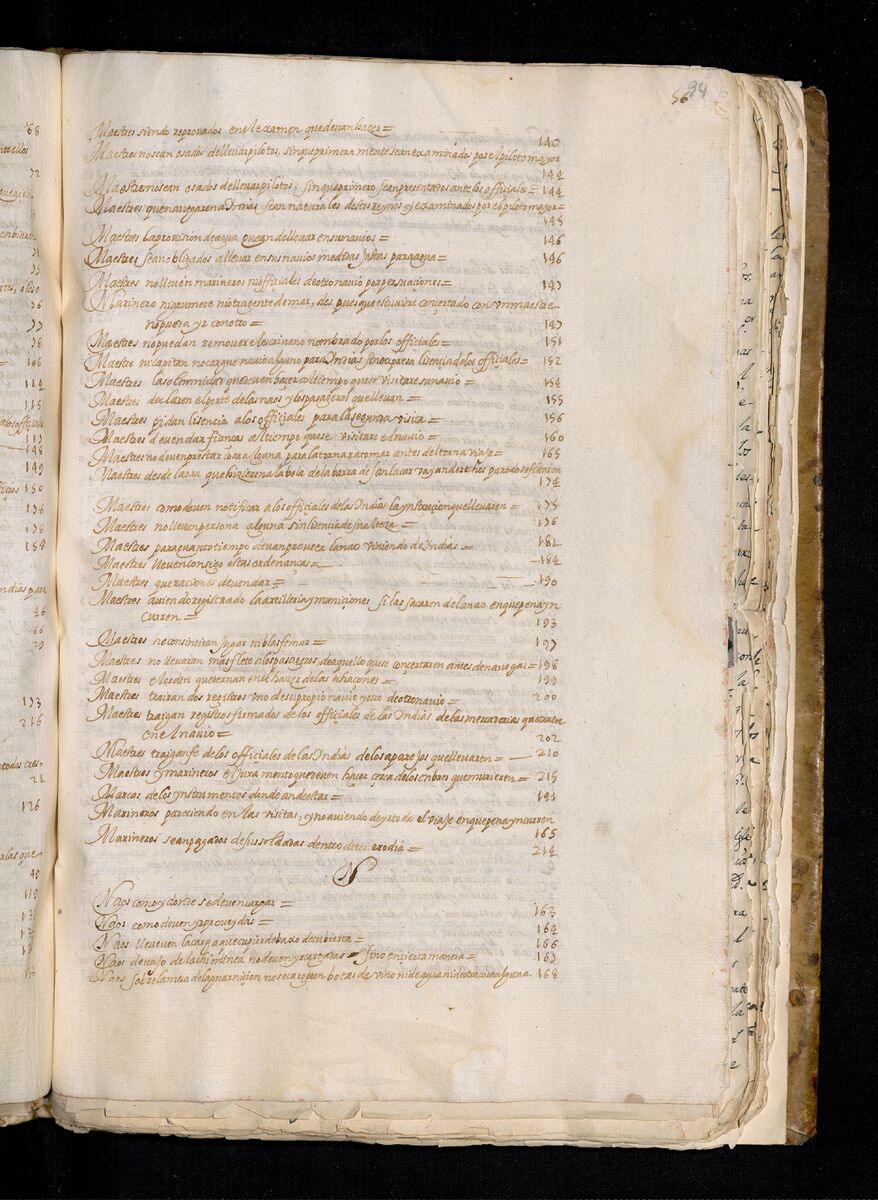 56 94
Maestres siendo reprouados en el examen que deuan hazer = 140
Maestres no sean osados de lleuar pilotos, sin que primera mente sean examinados por el piloto mayor 144
Maestre no sean osados de lleuar pilotos, sin que primero sean presentados ante los officiales = 144
Maestres que nauegaren a Indias sean naturales destos reynos y examinados por el piloto mayor = 145
Maestres la prouision de agua que an de lleuar en su nauios = 146
Maestres sean obligados a lleuar en su nauios medidas justas para agua = 146
Maestres no lleuen marineros ni officiales de otro nauio por persuaciones = 147
Marinero ni grumete ni otra gente de mar, des pues que estuuiere conçertado con vn maestre
no pueda yr con otro = 147
Maestres no puedan remouer el escriuano nombrado por los officiales = 151
Maestre ni capitan no cargue nauio alguno para Indias sin expresa lisençia de los officiales = 152
Maestres la solemnidad que deuen hazer al tiempo que se visitare su nauio = 154
Maestres declaren el porte de las naos y los pasajeros que lleuan = 155
Maestres pidan lisençia a los officiales para la segunda visita = 156
Maestres deuen dar fianças al tiempo que se visitare el nauio = 160
Maestres no deuen prestar cosa alguna para la tornar a tomar antes del torna viaje = 165
Maestres desde la ora que hizieren la bela de la barra de san lucar vayan direchos para do se fletaren 174
Maestres como deuen notificar a los officiales de las Indias la ynstruçion que lleuaren = 175
Maestres no lleuen persona alguna sin lisençia de su alteza = 176
Maestres para quanto tiempo deuan proueer la nao viniendo de Indias = 181
Maestres lleuen consigo estas ordenanças = 184
Maestres que raciones deuen dar = 190
Maestres auiendo registrado la artilleria y municiones si las sacaren de la nao en que pena yn
curren = 193
Maestres no consentiran jugar ni blasfemar = 197
Maestres no lleuaran mas flete a los pasageros de aquello que se conçertaren antes de nauegar = 198
Maestres el orden que ternan en el hazer de las echaçones = 199
Maestres trairan dos registros vno de su propio nauio y otro de otro nauio = 200
Maestres traigan registros firmados de los officiales de las Indias de las mercaderias que traen
en el nauio = 202
Maestres traigan fe de los officiales de las Indias de los aparejos que lleuaren = 210
Maestres y marineros el jura mento que deuen hazer çerca de los onbres que murieren = 215
Marcas de los ynstrumentos donde an de estar = 141
Marineros pareciendo en las visitas, y no auiendo de yr todo el viaje en que pena yncurren 165
Marineros sean pagados de sus soldadas dentro de tercero dia = 214
N
Naos como y donde se deuen cargar = 163
Naos como deuen yr proueydas = 164
Naos lleuen la carga que cupiere debaxo de cubierta = 166
Naos debajo de la chiminea no deuen yr cargadas = sino en cierta manera = 167
Naos sobre la mesa de la guarniçion no se cargaran botas de vino ni de agua ni de otra cosa alguna. 168